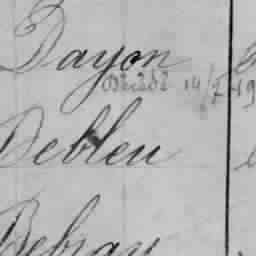 Dayon
Décédé 14/7-19
Debleu
Debray